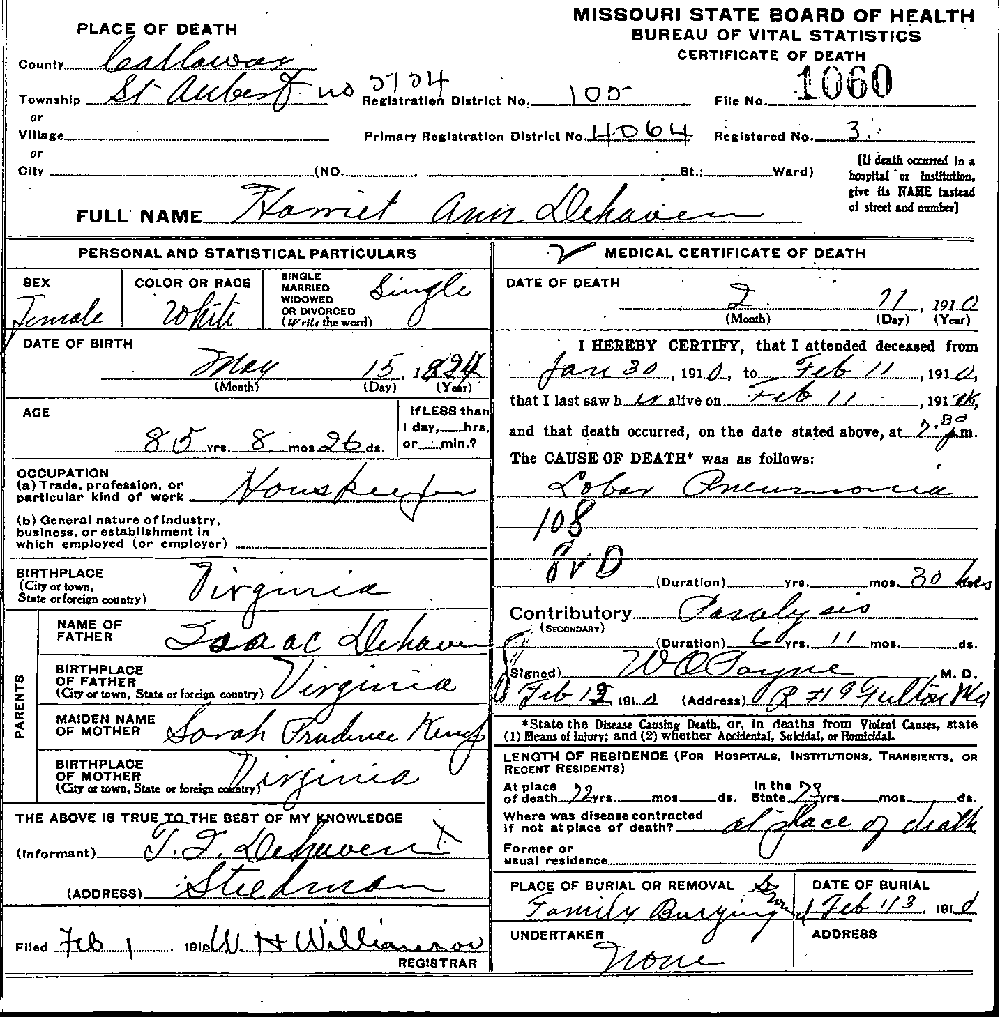 MISSOURI STATE BOARD OF HEALTH
BUREAU OF VITAL STATISTICS
CERTIFICATE OF DEATH
PLACE OF DEATH
County Callaway
Township St Aubert no 2724 Registration District No. 105 File No. 1060
or
Village Primary Registration District No. 4064 Registered No. 3
or
City (NO. St.; Ward)
[If death occurred in a hospital or institution, give its NAME instead of street and number]
FULL NAME Harriet Ann Dehaven
PERSONAL AND STATISTICAL PARTICULARS
SEX Female
COLOR OR RACE White
SINGLE MARRIED WIDOWED OR DIVORCED (Write the word) Single
DATE OF BIRTH
May 15, 1824
(Month) (Day) (Year)
AGE
85 yrs. 8 mos. 26 ds.
If LESS than 1 day, hrs. or min.?
OCCUPATION
(a) Trade, profession, or particular kind of work Houskeeper
(b) General nature of Industry, business, or establishment in which employed (or employer)
BIRTHPLACE
(City or town, State or foreign country) Virginia
PARENTS
NAME OF FATHER Isaac Dehaven
BIRTHPLACE OF FATHER
(City or town, State or foreign country) Virginia
MAIDEN NAME OF MOTHER Sarah Prudence
BIRTHPLACE OF MOTHER
(City or town, State or foreign country) Virginia
THE ABOVE IS TRUE TO THE BEST OF MY KNOWLEDGE
(Informant) T. F. Dehaven
(ADDRESS) Stedman
Filed Feb 1 1910 W. H Williamson
REGISTRAR
2 MEDICAL CERTIFICATE OF DEATH
DATE OF DEATH
2 11 1910
(Month) (Day) (Year)
I HEREBY CERTIFY, that I attended deceased from
Jan 30, 1910, to Feb 11, 1910,
that I last saw her alive on Feb 11, 191
and that death occurred, on the date stated above, at 7.30 pm.
The CAUSE OF DEATH* was as follows:
Lobar Pneumonia
108
(Duration) yrs. mos. 30 hrs
Contributory Paralysis
(SECONDARY)
(Duration) 6 yrs. 11 mos. ds.
(Signed) W O Payne M. D.
Feb 12 1910 (Address) R # 9 Fulton Mo
*State the Disease Causing Death, or, in deaths from Violent Causes, state
(1) Means of Injury; and (2) whether Accidental, Suicidal, or Homicidal.
LENGTH OF RESIDENCE (FOR HOSPITALS, INSTITUTIONS, TRANSIENTS, OR RECENT RESIDENTS)
At place of death 72 yrs. mos. ds. In the State 73 yrs. mos. ds.
Where was disease contracted if not at place of death? at place of death
Former or usual residence
PLACE OF BURIAL OR REMOVAL Family Burying
DATE OF BURIAL Feb 13 1910
UNDERTAKER None
ADDRESS